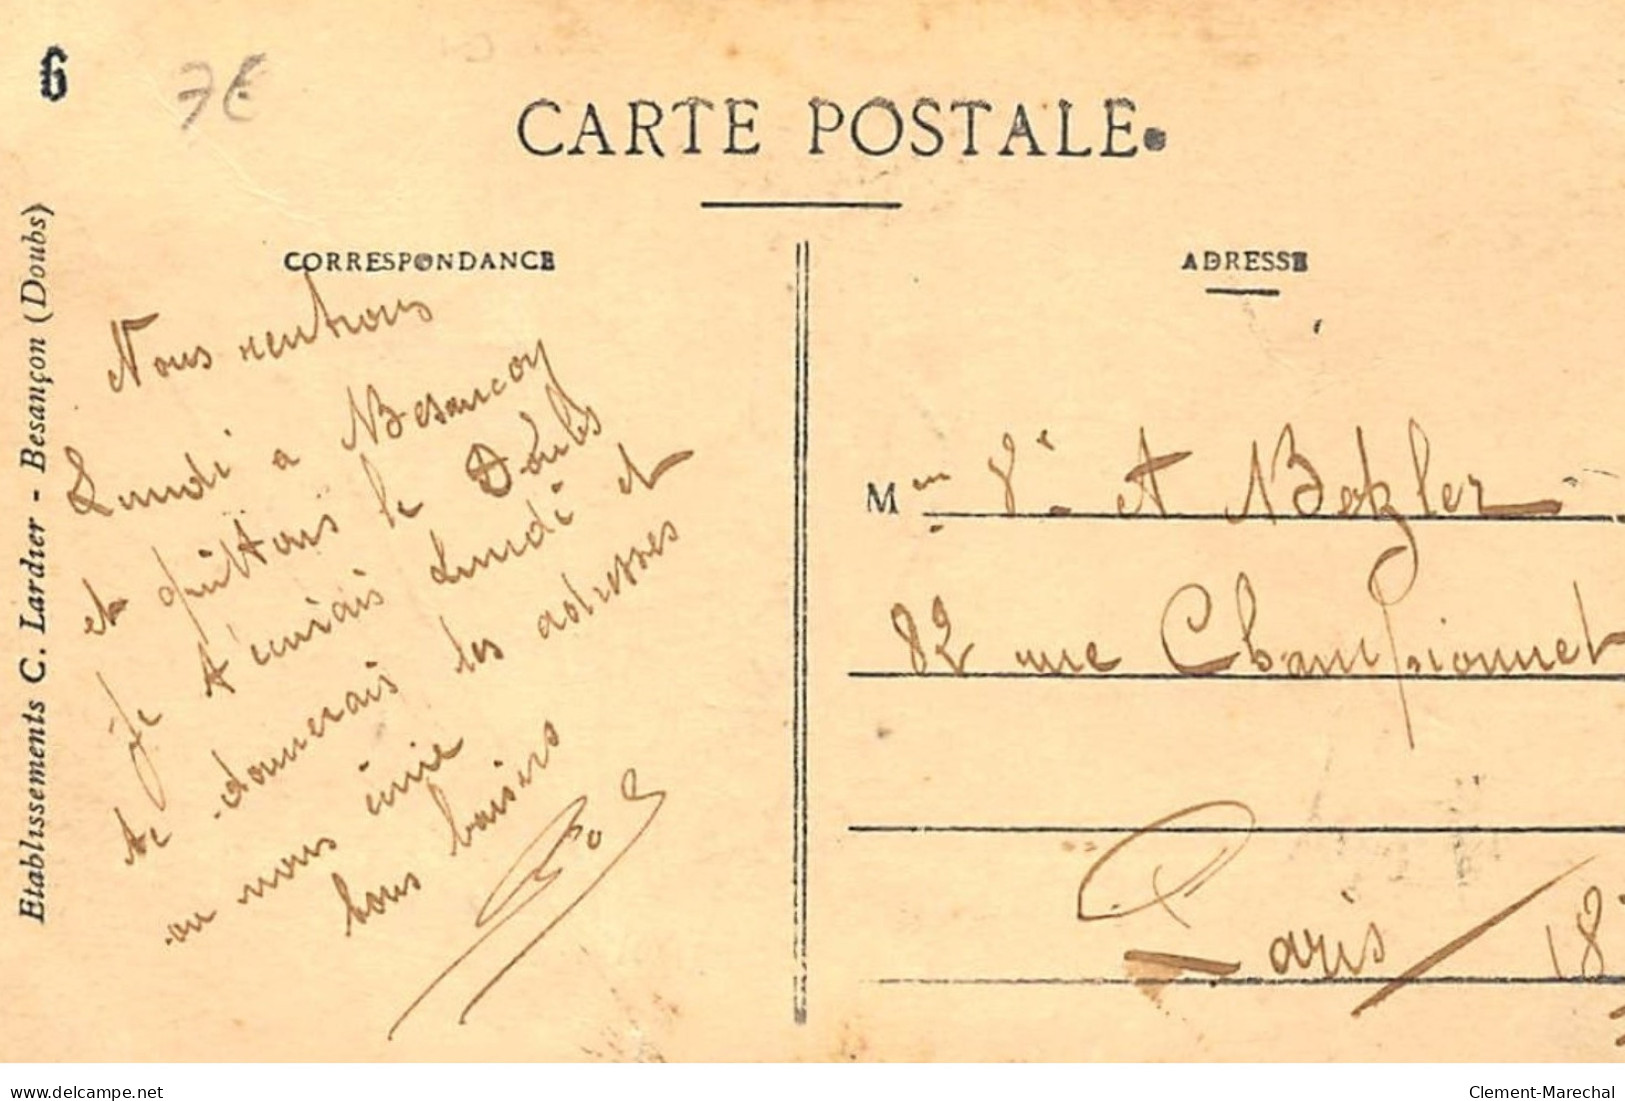 6
7€
CARTE POSTALE.
CORRESPONDANCE
ADRESSE
Etablissements C. Lardier - Besançon (Doubs)
Nous rentrons
Lundi a Besancon
et quittons le Doubs
je t'écrirais Lundi et
te donnerais les adresses
ou nous irons
bons baisers
Mme Vve et
82 rue Championnet
Paris / 18
delcampe.net
Clement-Marechal